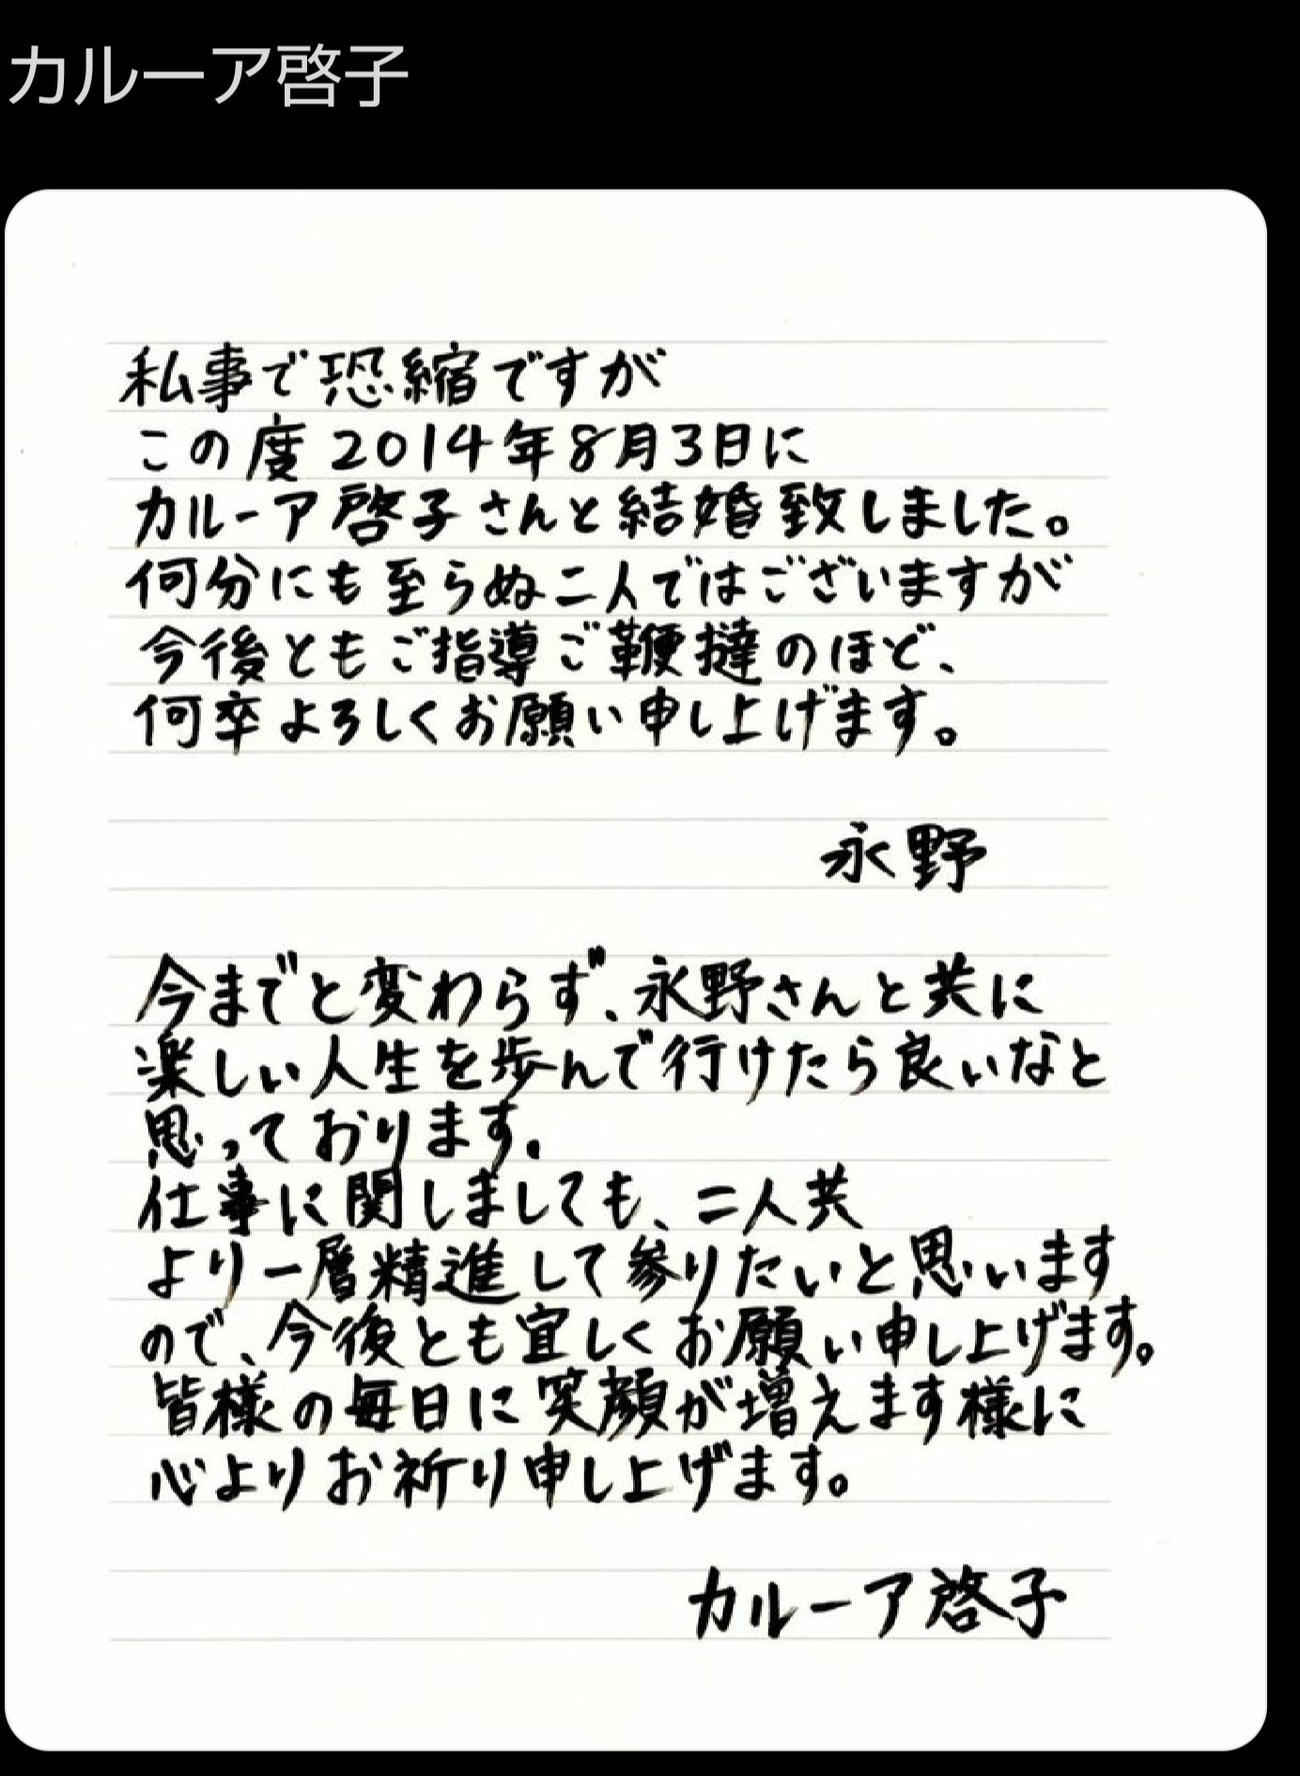 カルーア啓子
私事で恐縮ですが
この度2014年8月3日に
カルーア啓子さんと結婚致しました。
何分にも至らぬ二人ではございますが
今後ともご指導ご鞭撻のほど、
何卒よろしくお願い申し上げます。
永野
今までと変わらず、永野さんと共に
楽しい人生を歩んで行けたら良いなと
思っております。
仕事に関しましても、二人共
より一層精進して参りたいと思います
ので、今後とも宜しくお願い申し上げます。
皆様の毎日に笑顔が増えます様に
心よりお祈り申し上げます。
カルーア啓子